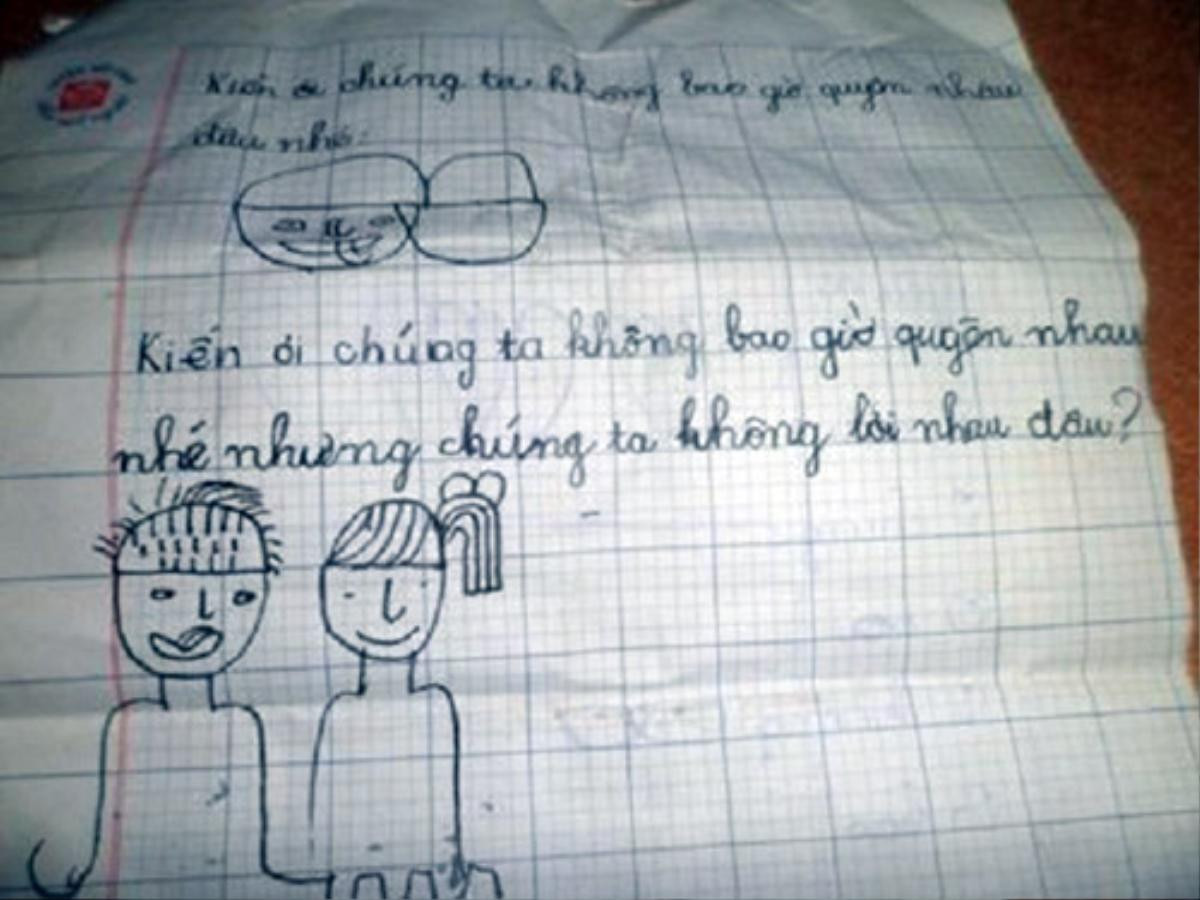 Kiến ơi chúng ta không bao giờ quyên nhau
đâu nhé.
Kiến ơi chúng ta không bao giờ quyên nhau
nhé nhưng chúng ta không lời nhau đâu?